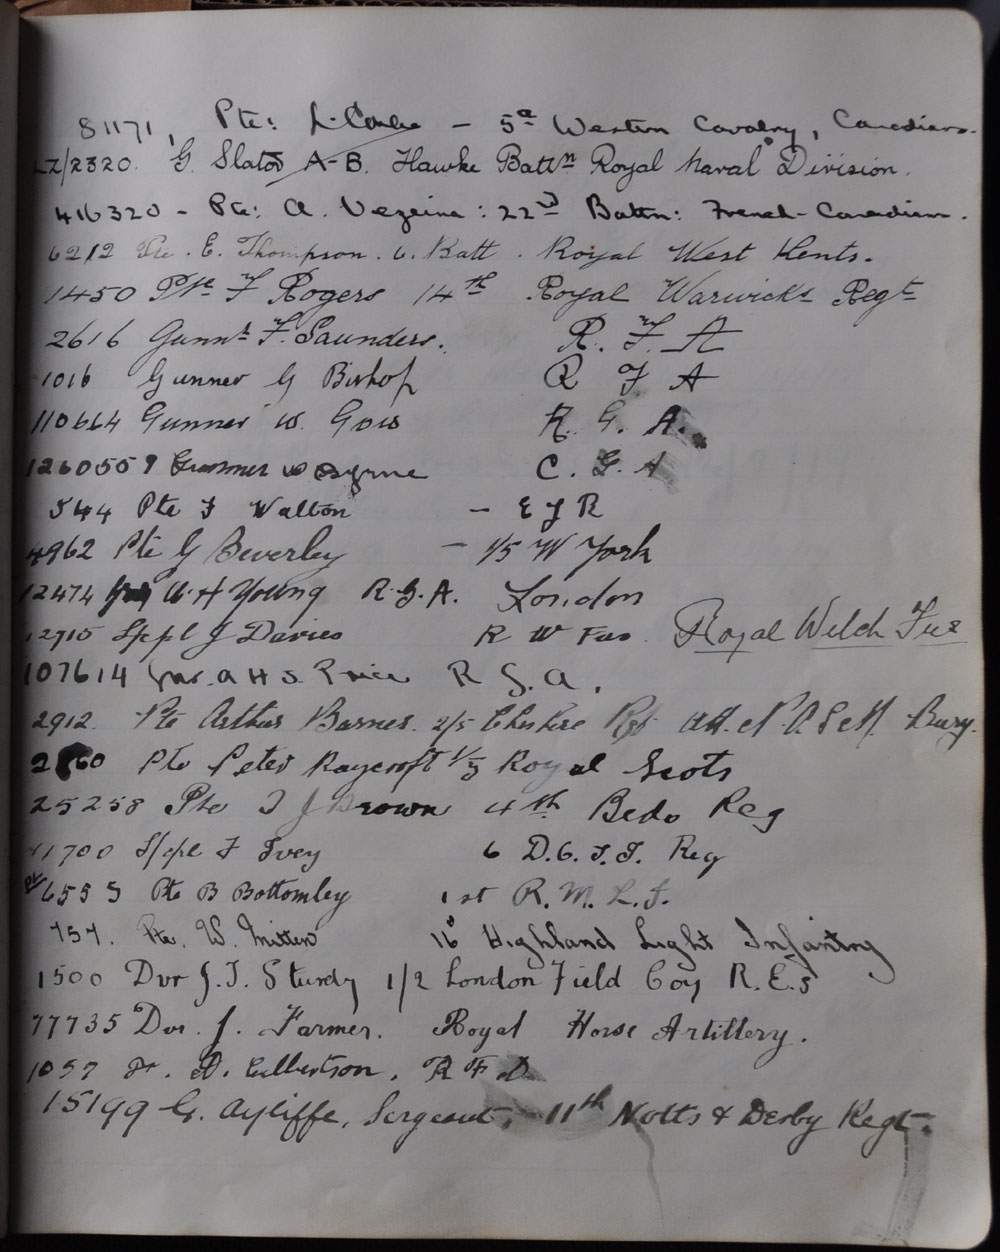 81171, Pte: L. Combe - 5th Western Cavalry, Canadians.
LZ/2320. G. Slator A-B. Hawke Battn Royal Naval Division.
416320 - Pte: A. Vezeina: 22nd Battn: French-Canadian.
6212 Pte. E. Thompson. 6. Batt. Royal West Kents.
1450 Pte F Rogers 14th Royal Warwicks Regt
2616 Gunnr F. Saunders. R. F. A
1016 Gunner G Bishop R F A
110664 Gunner W. Gow R. G. A.
1260559 Gunner W Byrne C. G. A
544 Pte F Walton - E Y R
4962 Pte G Beverley - 1/5 W York
12474 W. H Young R.G.A. London
12715 L/cpl J Davies R W Fus. Royal Welch Fus
107614 Gnr. A H S. Price R G. A.
2912. Pte Arthur Barnes. 2/5 Cheshire Rgt. att. N. A S of M Bury.
2160 Pte Peter Raycroft 1/5 Royal Scots
25258 Pte J Brown 4th Beds Reg
11700 L/cpl F Ivey 6 D.C.L.I. Reg
Pte B Bottomley 1st R. M. L. I.
757. Pte. W. Mitten 16 Highland Light Infantry
1500 Dvr J.J. Sturdy 1/2 London Field Coy R.E.s
77735 Dvr. J. Farmer. Royal Horse Artillery.
1057 Dr. D. Culbertson. R F D.
15199 G. Ayliffe, Sergeant, - 11th Notts & Derby Regt.